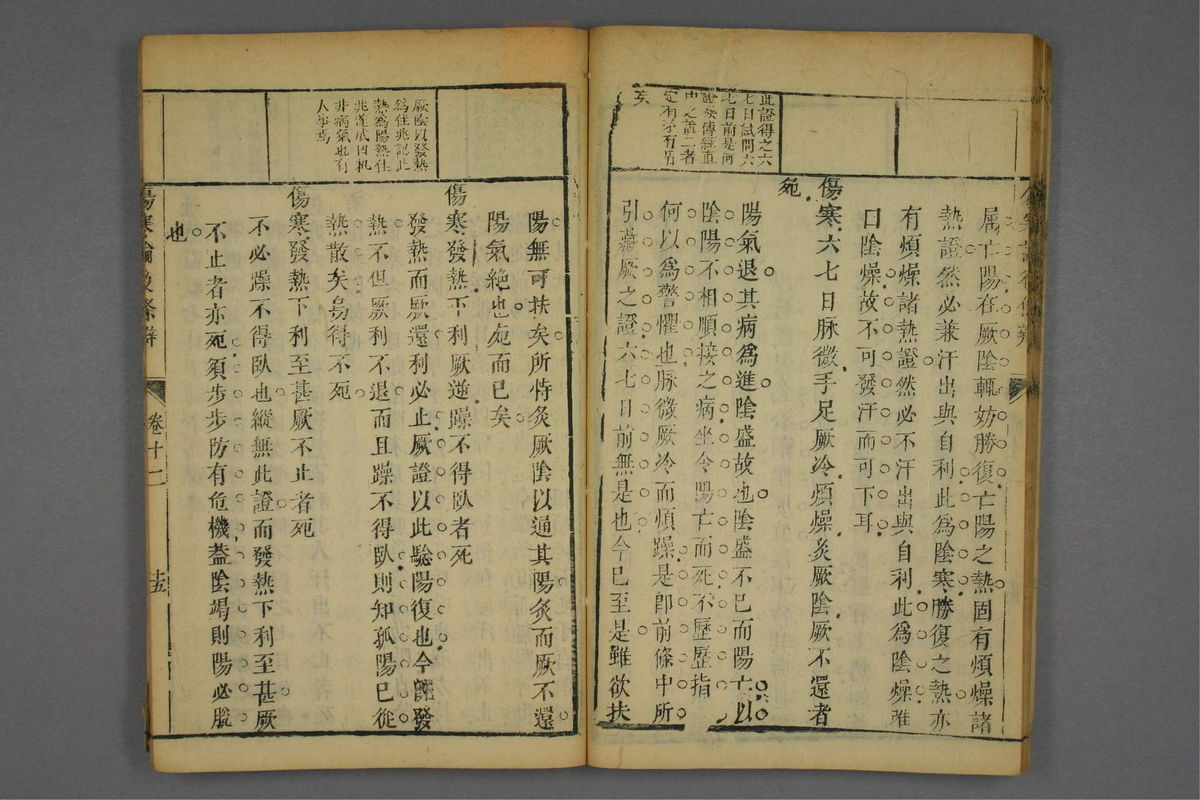 屬亡陽在厥陰輒妨勝復亡陽之熱固有煩燥諸
熱證然必兼汗出與自利此為陰寒勝復之熱亦
有煩燥諸熱證然必不汗出與自利此為陰燥雖
曰陰燥故不可發汗而可下耳
傷寒六七日脉微手足厥冷煩燥灸厥陰厥不還者
死
陽氣退其病為進陰盛故也陰盛不已而陽亡以
陰陽不相順接之病坐令陽亡而死不歷歷指
何以為警懼也脉微厥冷而煩躁是即前條中所
引藏厥之證六七日前無是也今已至是雖欲扶
此證得之六
七日試問六
七日前是何
證候傳經直
中之說二者
定有矛有盾
矣
陽無可扶矣所恃灸厥陰以通其陽灸而厥不還
陽氣絕也死而已矣
傷寒發熱下利厥逆躁不得臥者死
發熱而厥還利必止厥證以此驗陽復也今雖發
熱不但厥利不退而且躁不得臥則知孤陽已從
熱散矣曷得不死
傷寒發熱下利至甚厥不止者死
不必躁不得臥也縱無此證而發熱下利至甚厥
不止者亦死須步步防有危機蓋陰竭則陽必脫
也
厥陰以發熱
為佳兆認此
熱為陽熱佳
兆遂成凶机
非病氣也有
人事焉
傷寒論後條辨
卷十二
十五